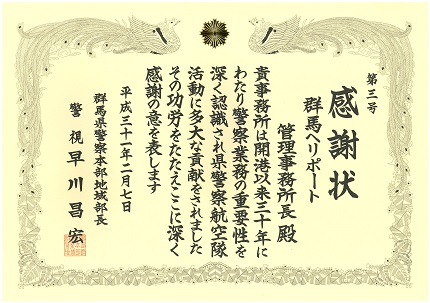 第三号
感謝状
群馬ヘリポート
管理事務所長 殿
貴事務所は開港以来三十年に
わたり警察業務の重要性を
深く認識され県警察航空隊
活動に多大な貢献をされました
その功労をたたえここに深く
感謝の意を表します
平成三十一年二月七日
群馬県警察本部地域部長
警視 早川昌宏